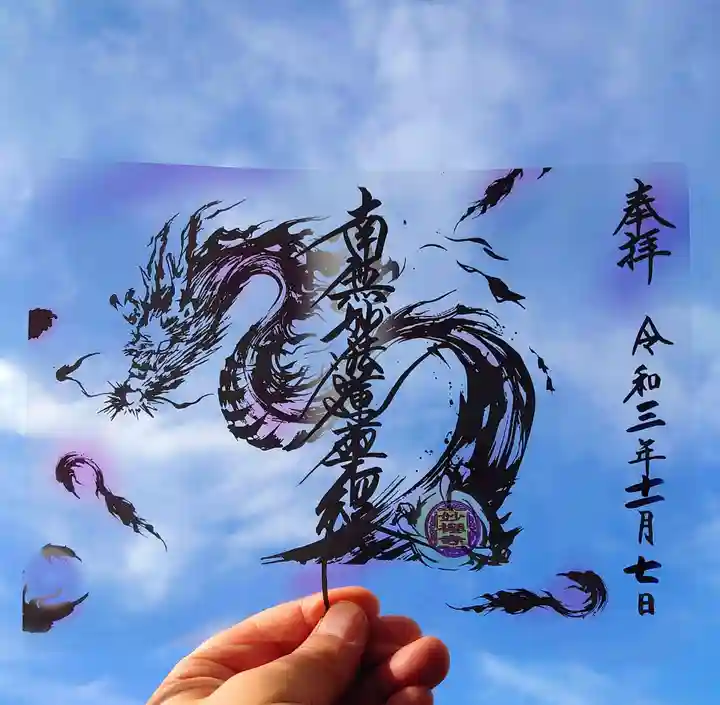 奉拝
令和三年十一月七日
南無妙法蓮華経